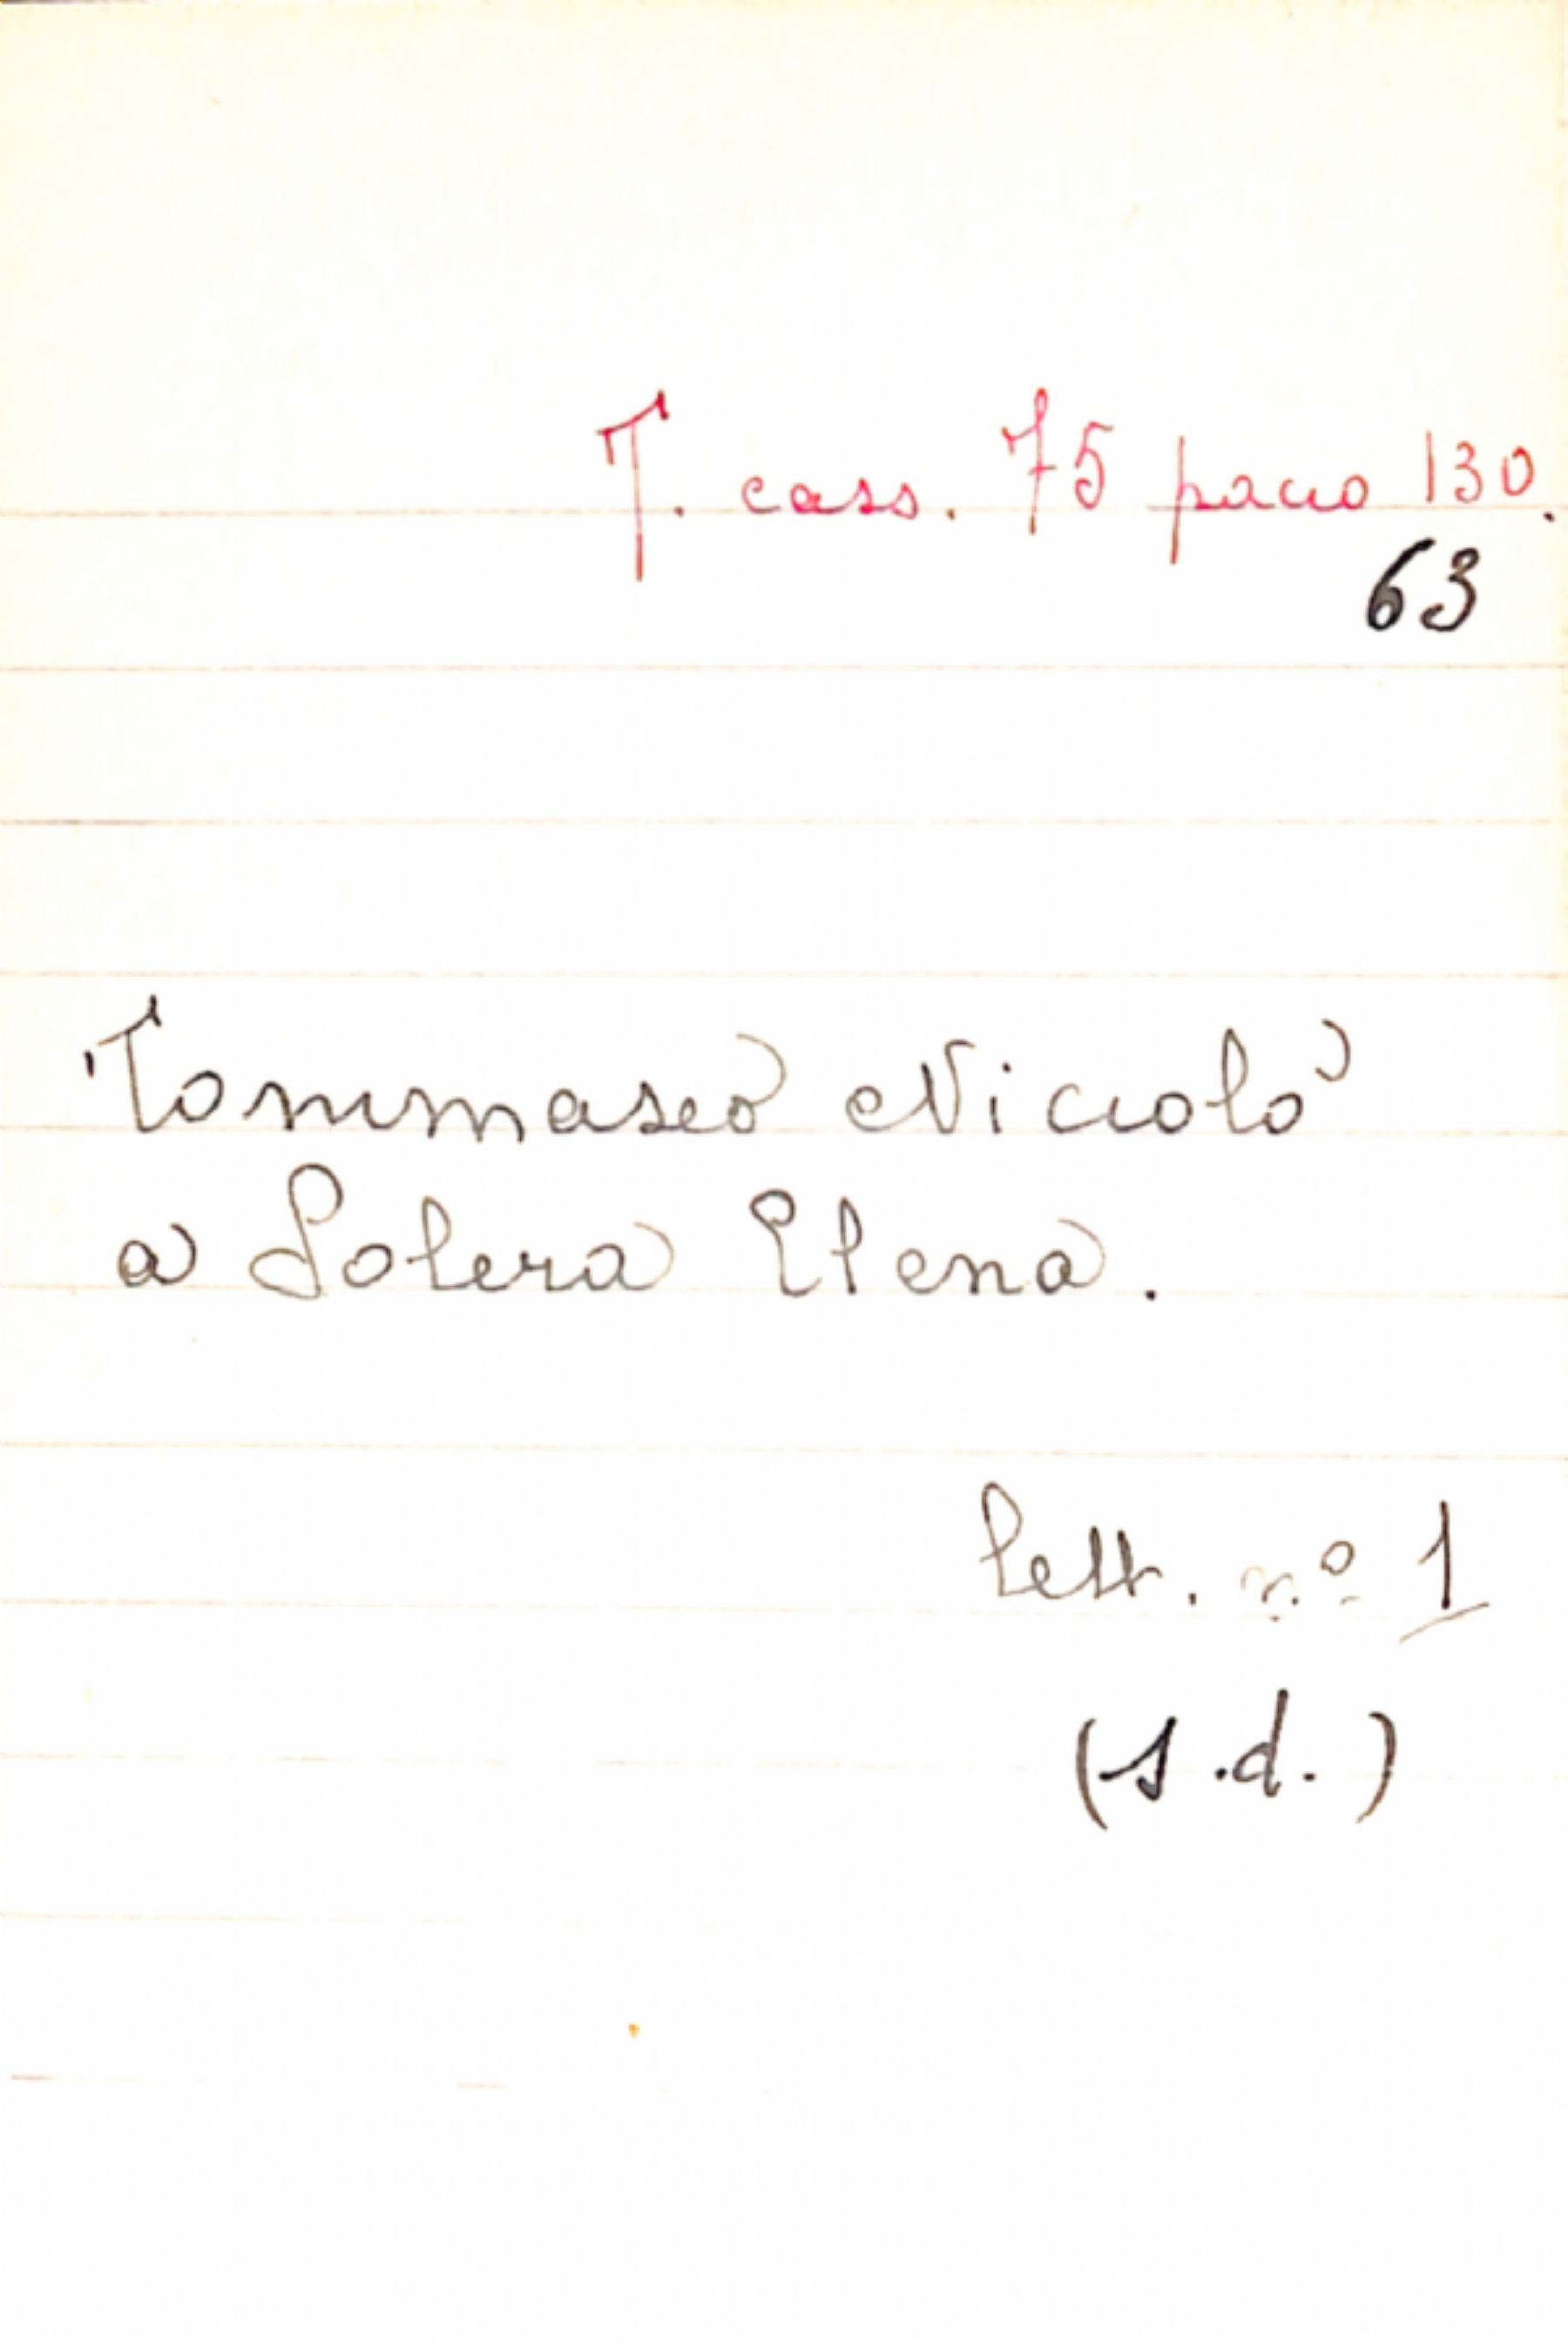 T. cass. 75 pacco 130.
63
Tommaseo Niccolò
a Solera Elena.
lett. n.º 1
(s.d.)